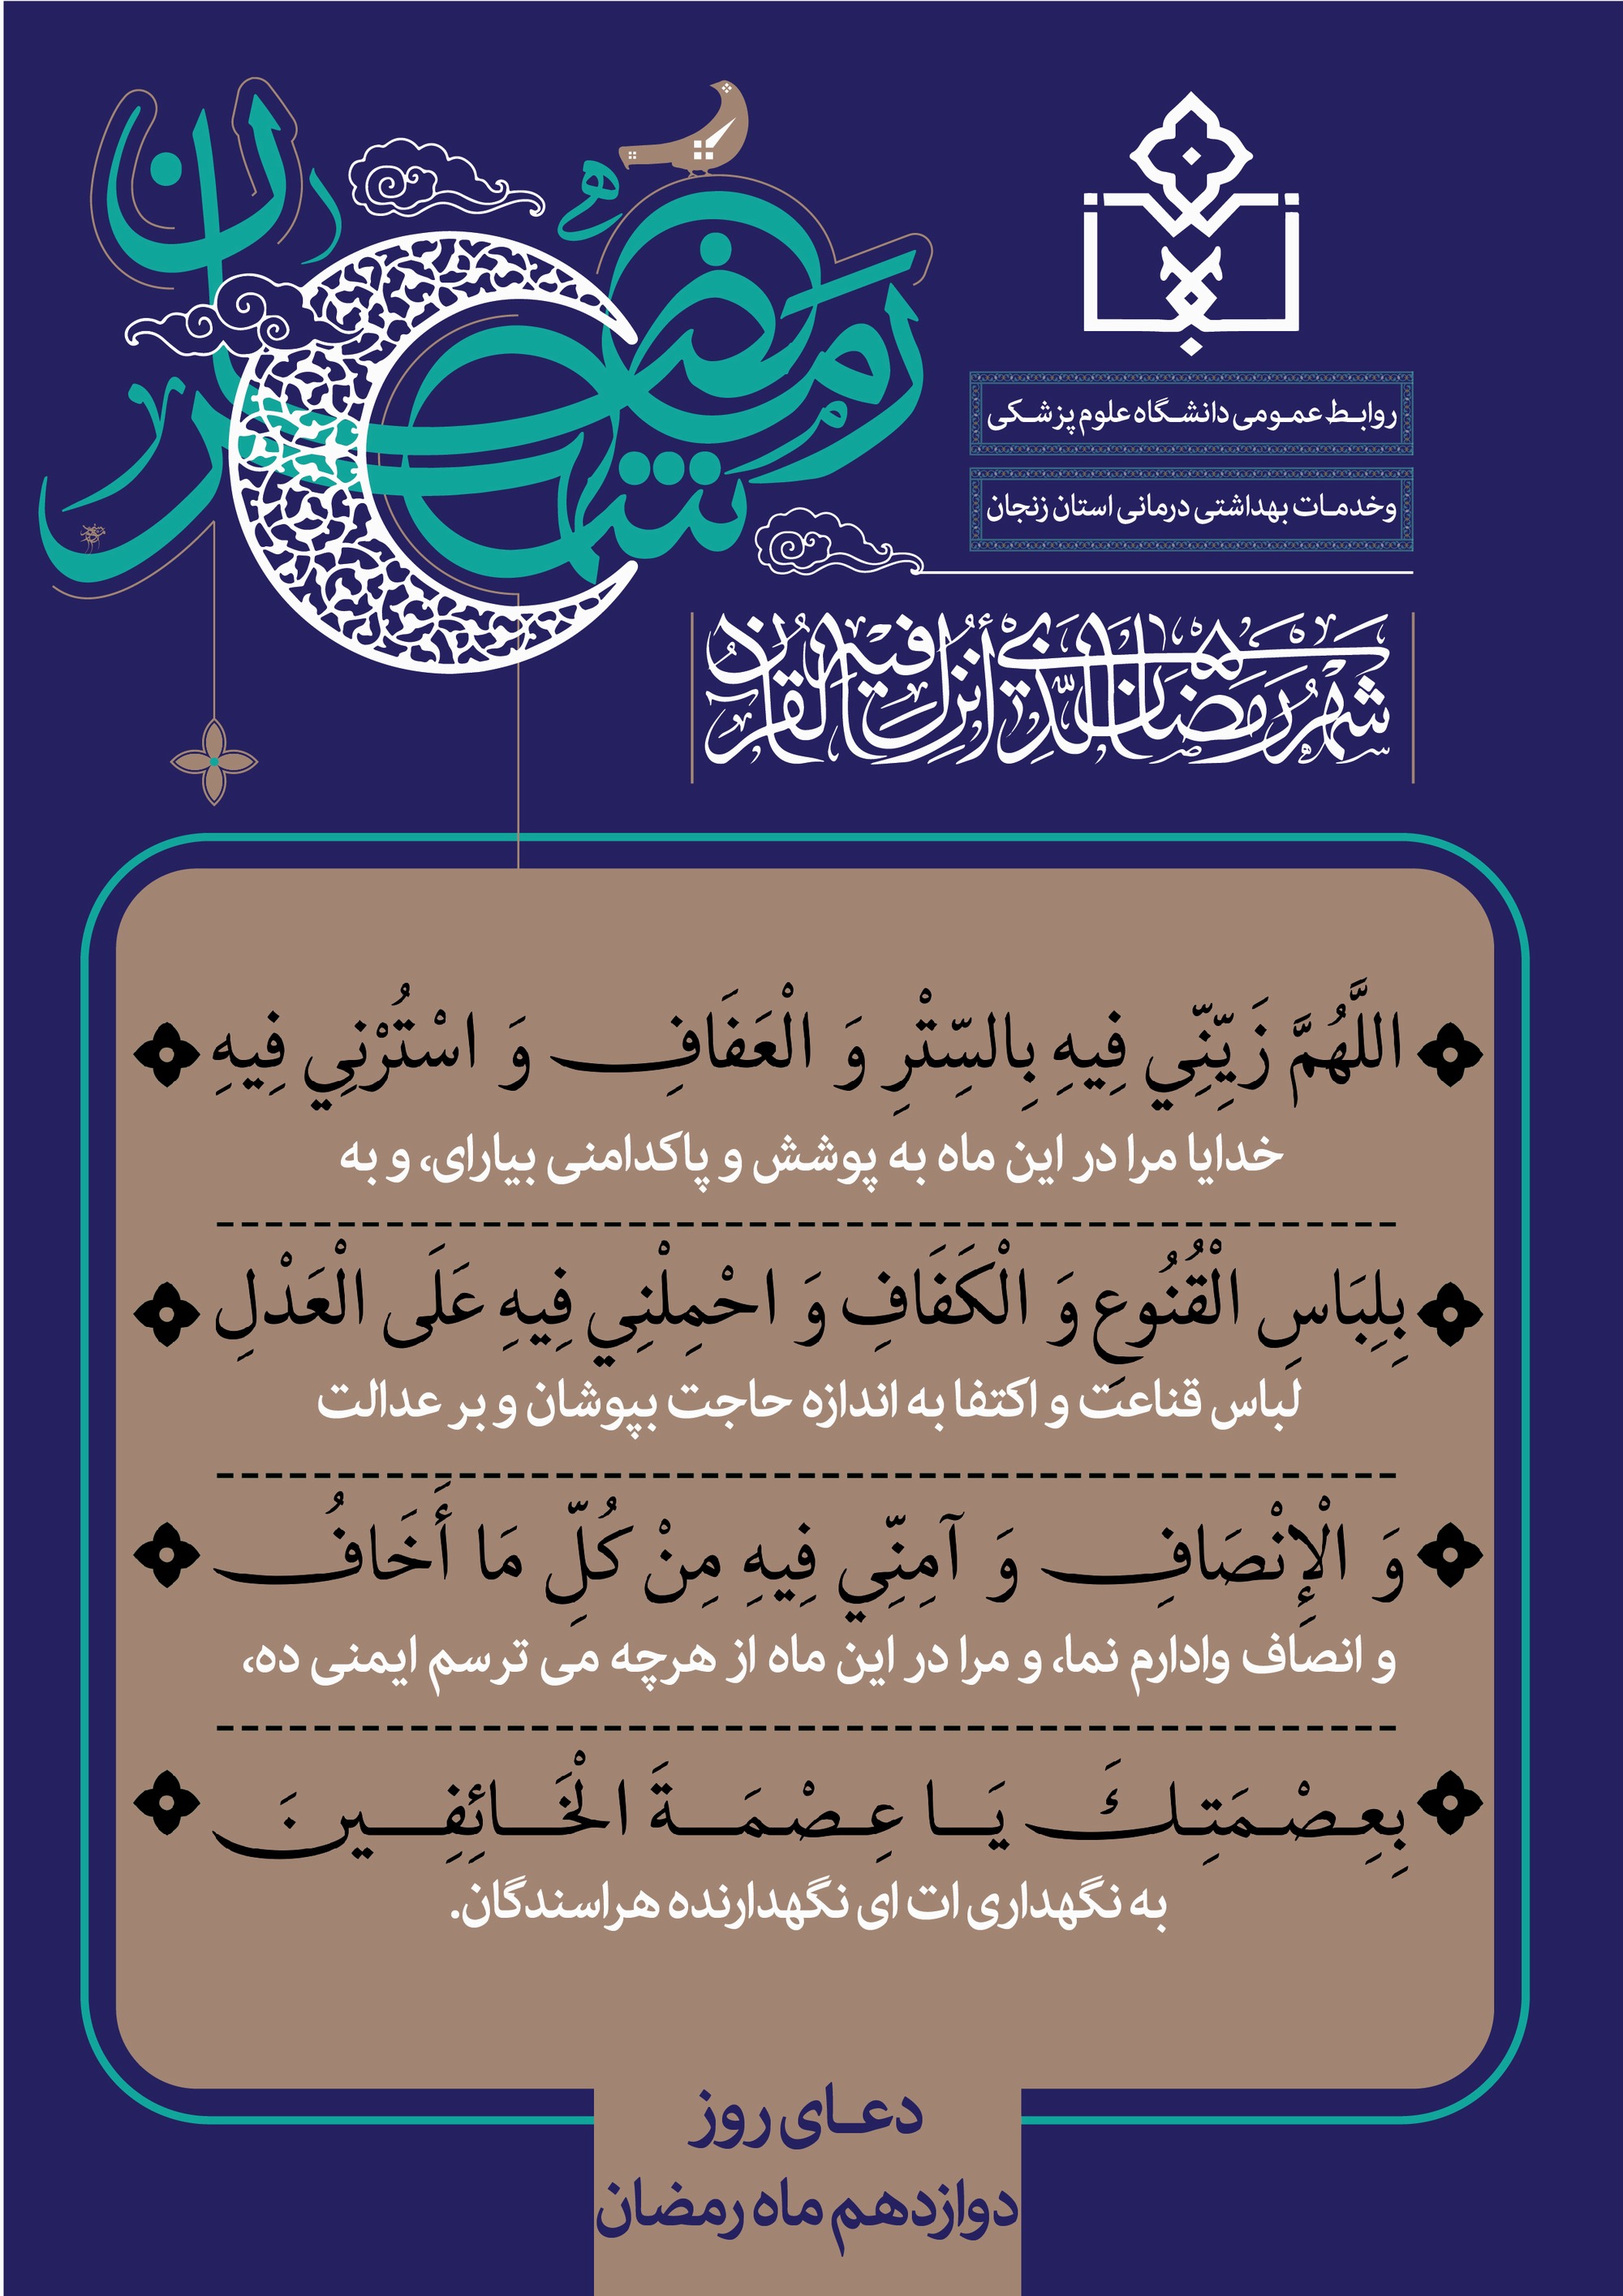 شهر رمضان
روابط عمومی دانشگاه علوم پزشکی
وخدمات بهداشتی درمانی استان زنجان
شهر رمضان الذی أنزل فیه القرآن
اللَّهُمَّ زَيِّنِّي فِيهِ بِالسِّتْرِ وَ الْعَفَافِ وَ اسْتُرْنِي فِيهِ
خدایا مرا در این ماه به پوشش و پاکدامنی بیارای، و به
بِلِبَاسِ الْقُنُوعِ وَ الْكَفَافِ وَ احْمِلْنِي فِيهِ عَلَى الْعَدْلِ
لباس قناعت و اکتفا به اندازه حاجت بپوشان و بر عدالت
وَ الْإِنْصَافِ وَ آمِنِّي فِيهِ مِنْ كُلِّ مَا أَخَافُ
و انصاف وادارم نما، و مرا در این ماه از هرچه می ترسم ایمنی ده،
بِعِصْمَتِكَ يَا عِصْمَةَ الْخَائِفِينَ
به نگهداری ات ای نگهدارنده هراسندگان.
دعای روز
دوازدهم ماه رمضان